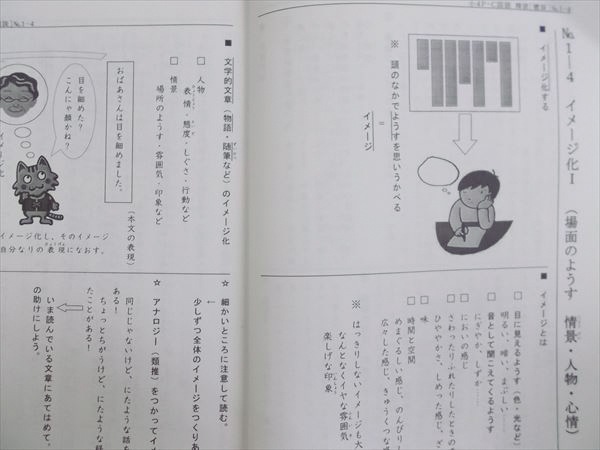 小4P-C国語 解説「観賞」№1-4
№1―4 イメージ化Ⅰ (場面のようす 情景・人物・心情)
■ イメージ化する
※ 頭のなかでようすを思いうかべる
=
イメージ
■ イメージとは
□ 目に見えるようす(色・光など)
明るい、暗い、まぶしい……
□ 音として聞こえてくるようす
にぎやか、しずか……
□ においの感じ
□ さわったりふれたりしたときの
ひややかさ、しめった感じ、ざ
□ 味
□ 時間と空間
めまぐるしい感じ、のんびりし
広々した感じ、きゅうくつな感
※ はっきりしないイメージも大
なんとなくイヤな雰囲気
楽しげな印象
№1-4
■ 文学的文章(物語・随筆など)のイメージ化
□ 人物
表情・態度・しぐさ・行動など
□ 情景
場所のようす・雰囲気・印象など
おばあさんは目を細めました。
(本文の表現)
目を細めた?
こんにゃ顔かね?
イメージ化
イメージ化し、そのイメージ
自分なりの表現になおす。
☆ 細かいところに注意して読む。
↓
少しずつ全体のイメージをつくりあ
☆ アナロジー(類推)をつかってイメ
同じじゃないけど、にたような話を
ある!
ちょっとちがうけど、にたような経
たことがある!
いま読んでいる文章にあてはめて、
の助けにしよう。